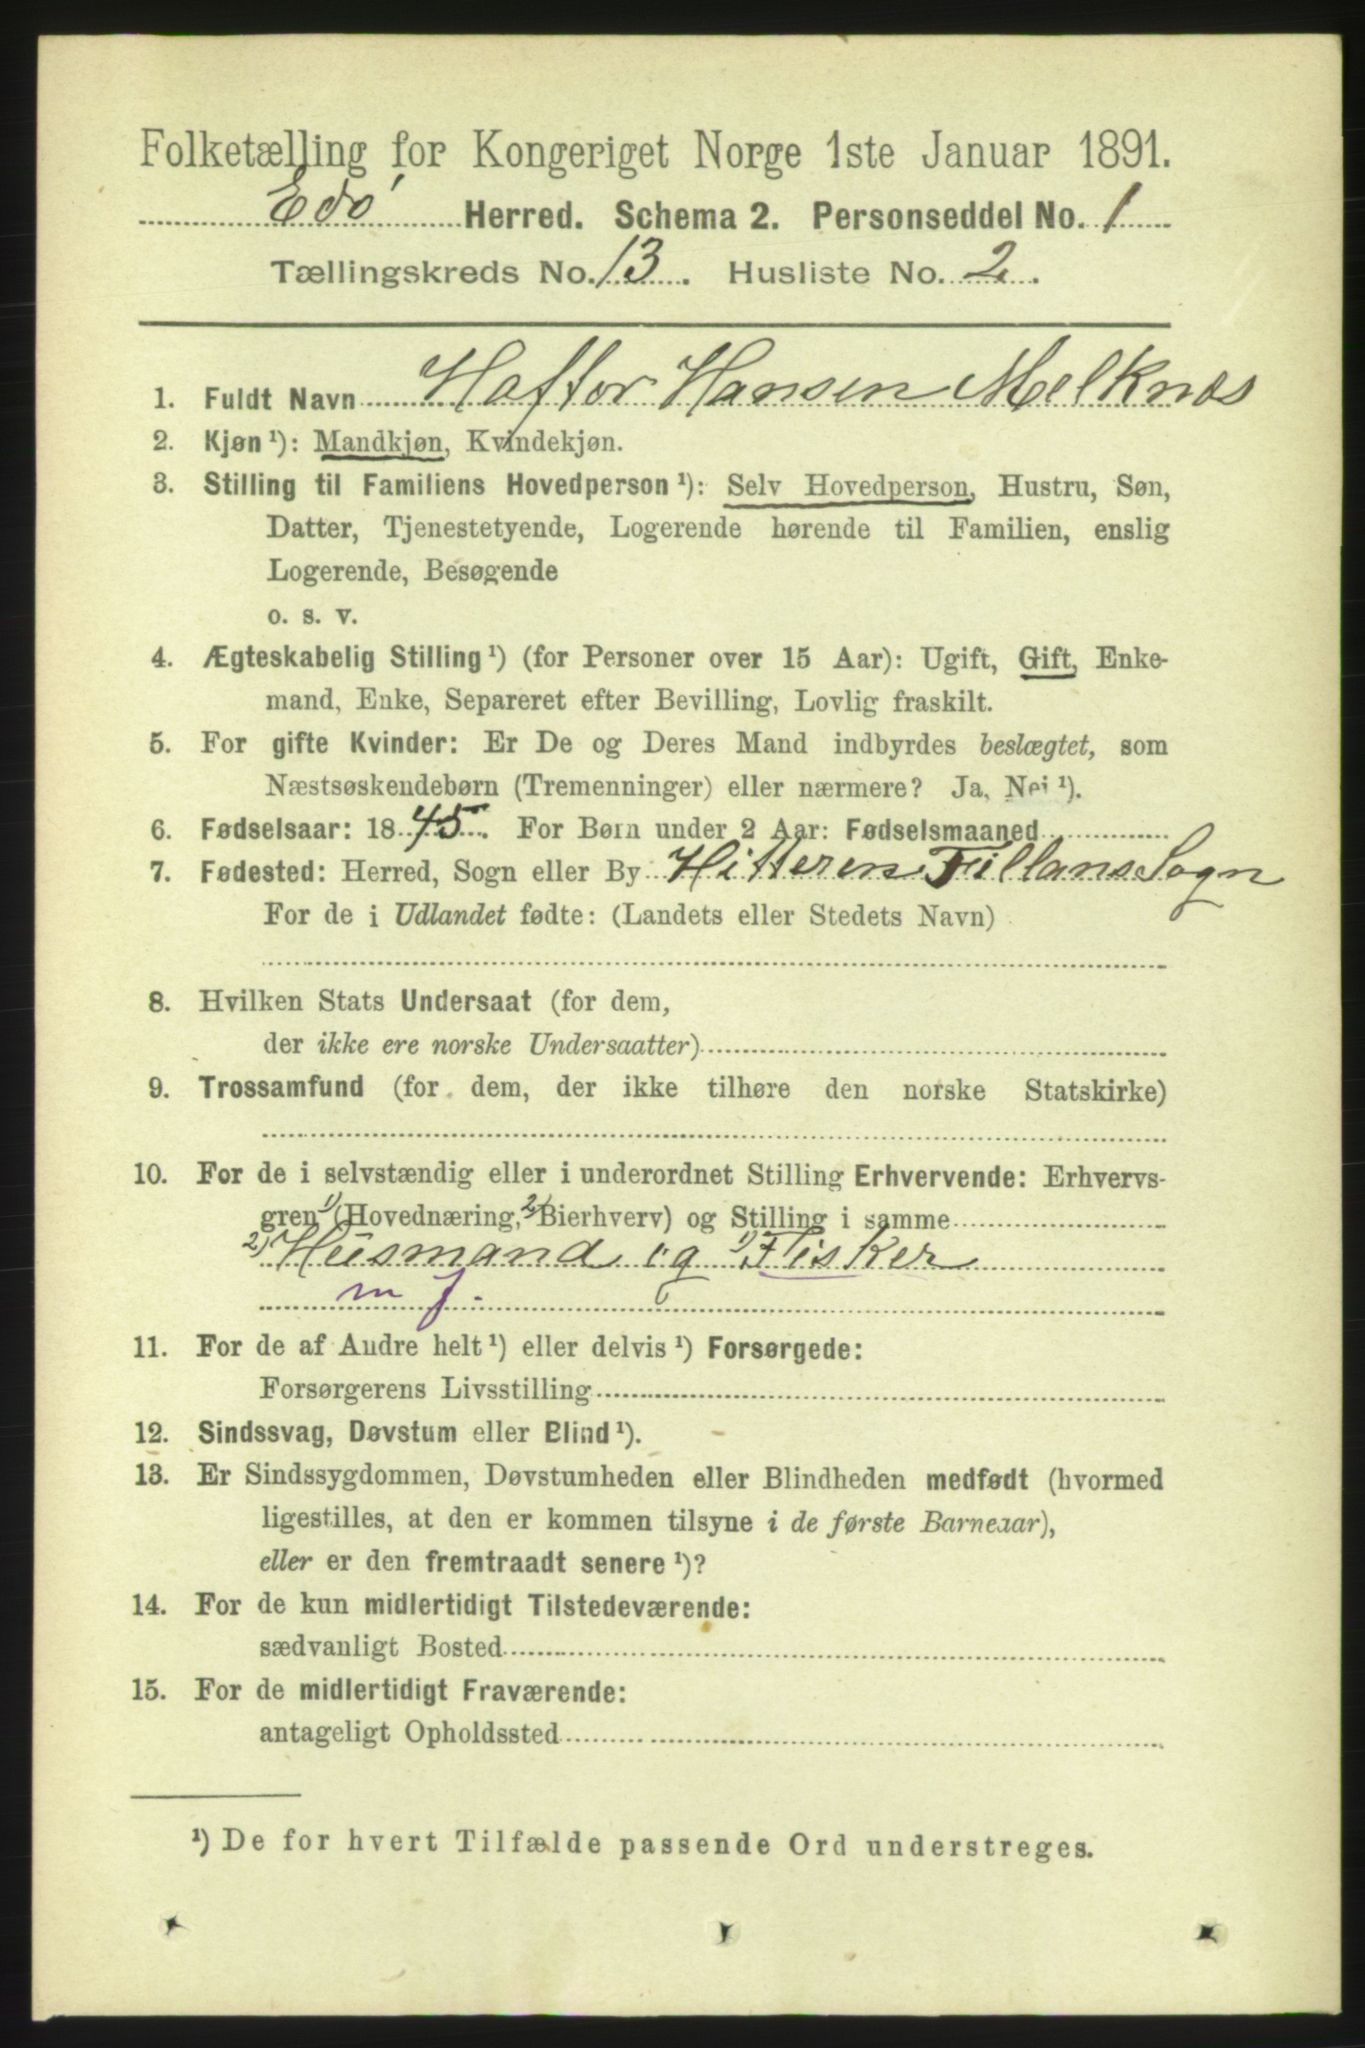 Folketælling for Kongeriget Norge 1ste Januar 1891.
Edö Herred. Schema 2. Personseddel No. 1
Tællingskreds No. 13. Husliste No. 2.
1. Fuldt Navn Haftor Hansen Melknæs
2. Kjøn ¹): Mandkjøn, Kvindekjøn.
3. Stilling til Familiens Hovedperson ¹): Selv Hovedperson, Hustru, Søn,
Datter, Tjenestetyende, Logerende hørende til Familien, enslig
Logerende, Besøgende
o. s. v.
4. Ægteskabelig Stilling ¹) (for Personer over 15 Aar): Ugift, Gift, Enke-
mand, Enke, Separeret efter Bevilling, Lovlig fraskilt.
5. For gifte Kvinder: Er De og Deres Mand indbyrdes beslægtet, som
Næstsøskendebørn (Tremenninger) eller nærmere? Ja, Nei ¹).
6. Fødselsaar: 1845. For Børn under 2 Aar: Fødselsmaaned
7. Fødested: Herred, Sogn eller By Hitteren Fillans Sogn
For de i Udlandet fødte: (Landets eller Stedets Navn)
8. Hvilken Stats Undersaat (for dem,
der ikke ere norske Undersaatter)
9. Trossamfund (for dem, der ikke tilhøre den norske Statskirke)
10. For de i selvstændig eller i underordnet Stilling Erhvervende: Erhvervs-
gren 1) (Hovednæring, 2) Bierhverv) og Stilling i samme
2) Husmand og 1) Fisker
m f.
11. For de af Andre helt ¹) eller delvis ¹) Forsørgede:
Forsørgerens Livsstilling
12. Sindssvag, Døvstum eller Blind ¹).
13. Er Sindssygdommen, Døvstumheden eller Blindheden medfødt (hvormed
ligestilles, at den er kommen tilsyne i de første Barneaar),
eller er den fremtraadt senere ¹)?
14. For de kun midlertidigt Tilstedeværende:
sædvanligt Bosted
15. For de midlertidigt Fraværende:
antageligt Opholdssted
¹) De for hvert Tilfælde passende Ord understreges.